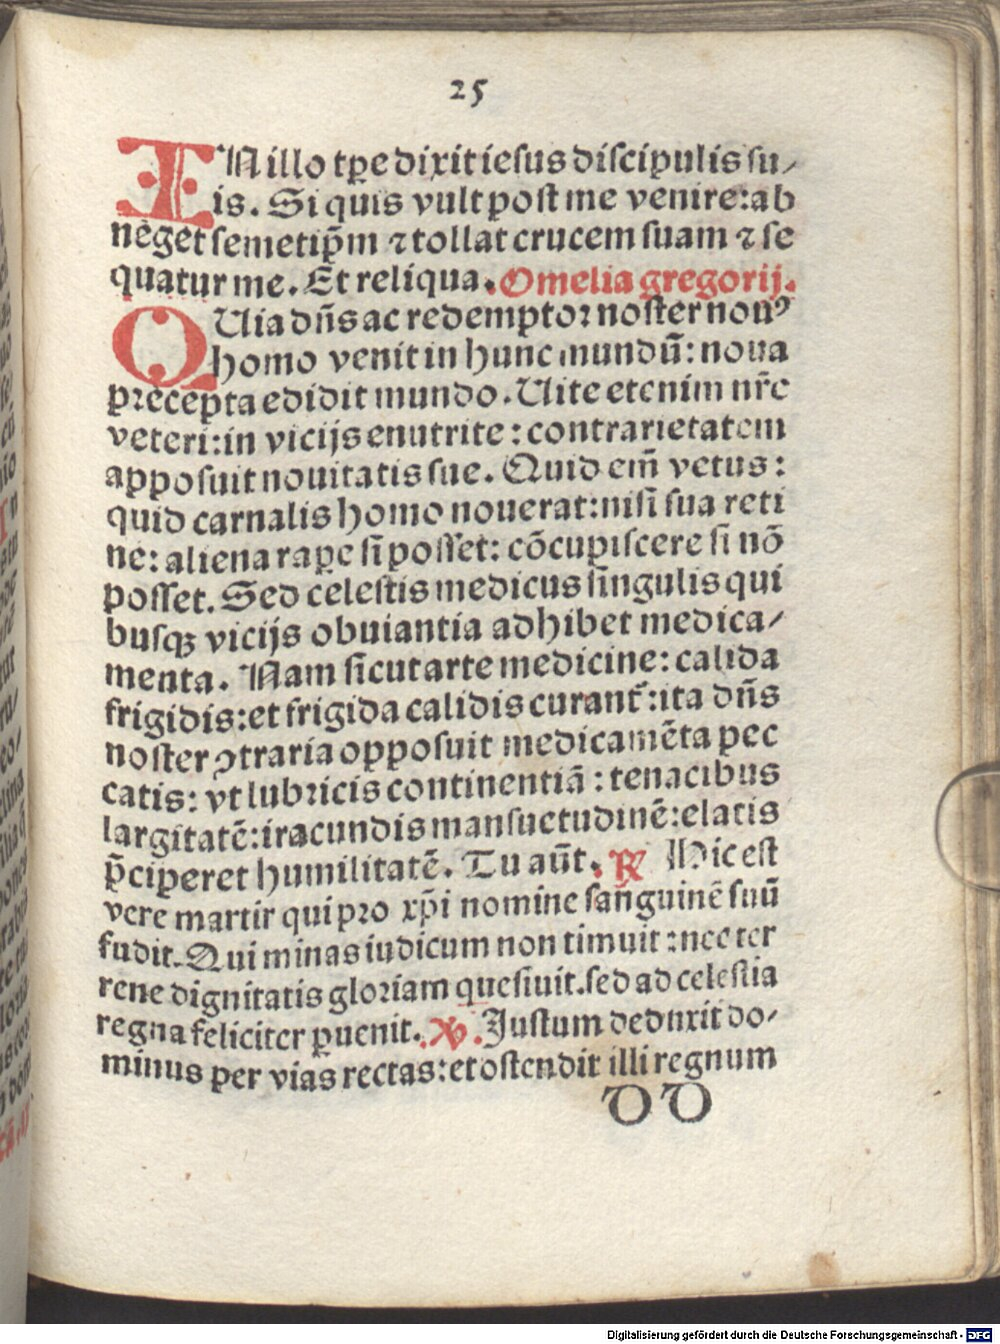 25
IN illo tꝑe dixit iesus discipulis su-
is. Si quis vult post me venire: ab
neget semetip̄m ⁊ tollat crucem suam ⁊ se
quatur me. Et reliqua. Omelia gregorij.
QUia dn̄s ac redemptor noster nouꝰ
homo venit in hunc mundū: noua
precepta edidit mundo. Uite etenim nr̄e
veteri: in vicijs enutrite: contrarietatem
apposuit nouitatis sue. Quid em̄ vetus:
quid carnalis homo nouerat: nisi sua reti
ne: aliena raꝑe si posset: cōcupiscere si nō
posset. Sed celestis medicus singulis qui
busqꝫ vicijs obuiantia adhibet medica-
menta. Nam sicut arte medicine: calida
frigidis: et frigida calidis curant̄: ita dn̄s
noster ꝯtraria opposuit medicamēta pec
catis: vt lubricis continentiā: tenacibus
largitatē: iracundis mansuetudinē: elatis
p̄ciperet humilitatē. Tu aūt. ℟ Hic est
vere martir qui pro xp̄i nomine sanguinē suū
fudit. Qui minas iudicum non timuit: nec ter
rene dignitatis gloriam quesiuit. sed ad celestia
regna feliciter ꝑuenit. ℣. Justum deduxit do-
minus per vias rectas: et ostendit illi regnum
DD
Digitalisierung gefördert durch die Deutsche Forschungsgemeinschaft - DFG